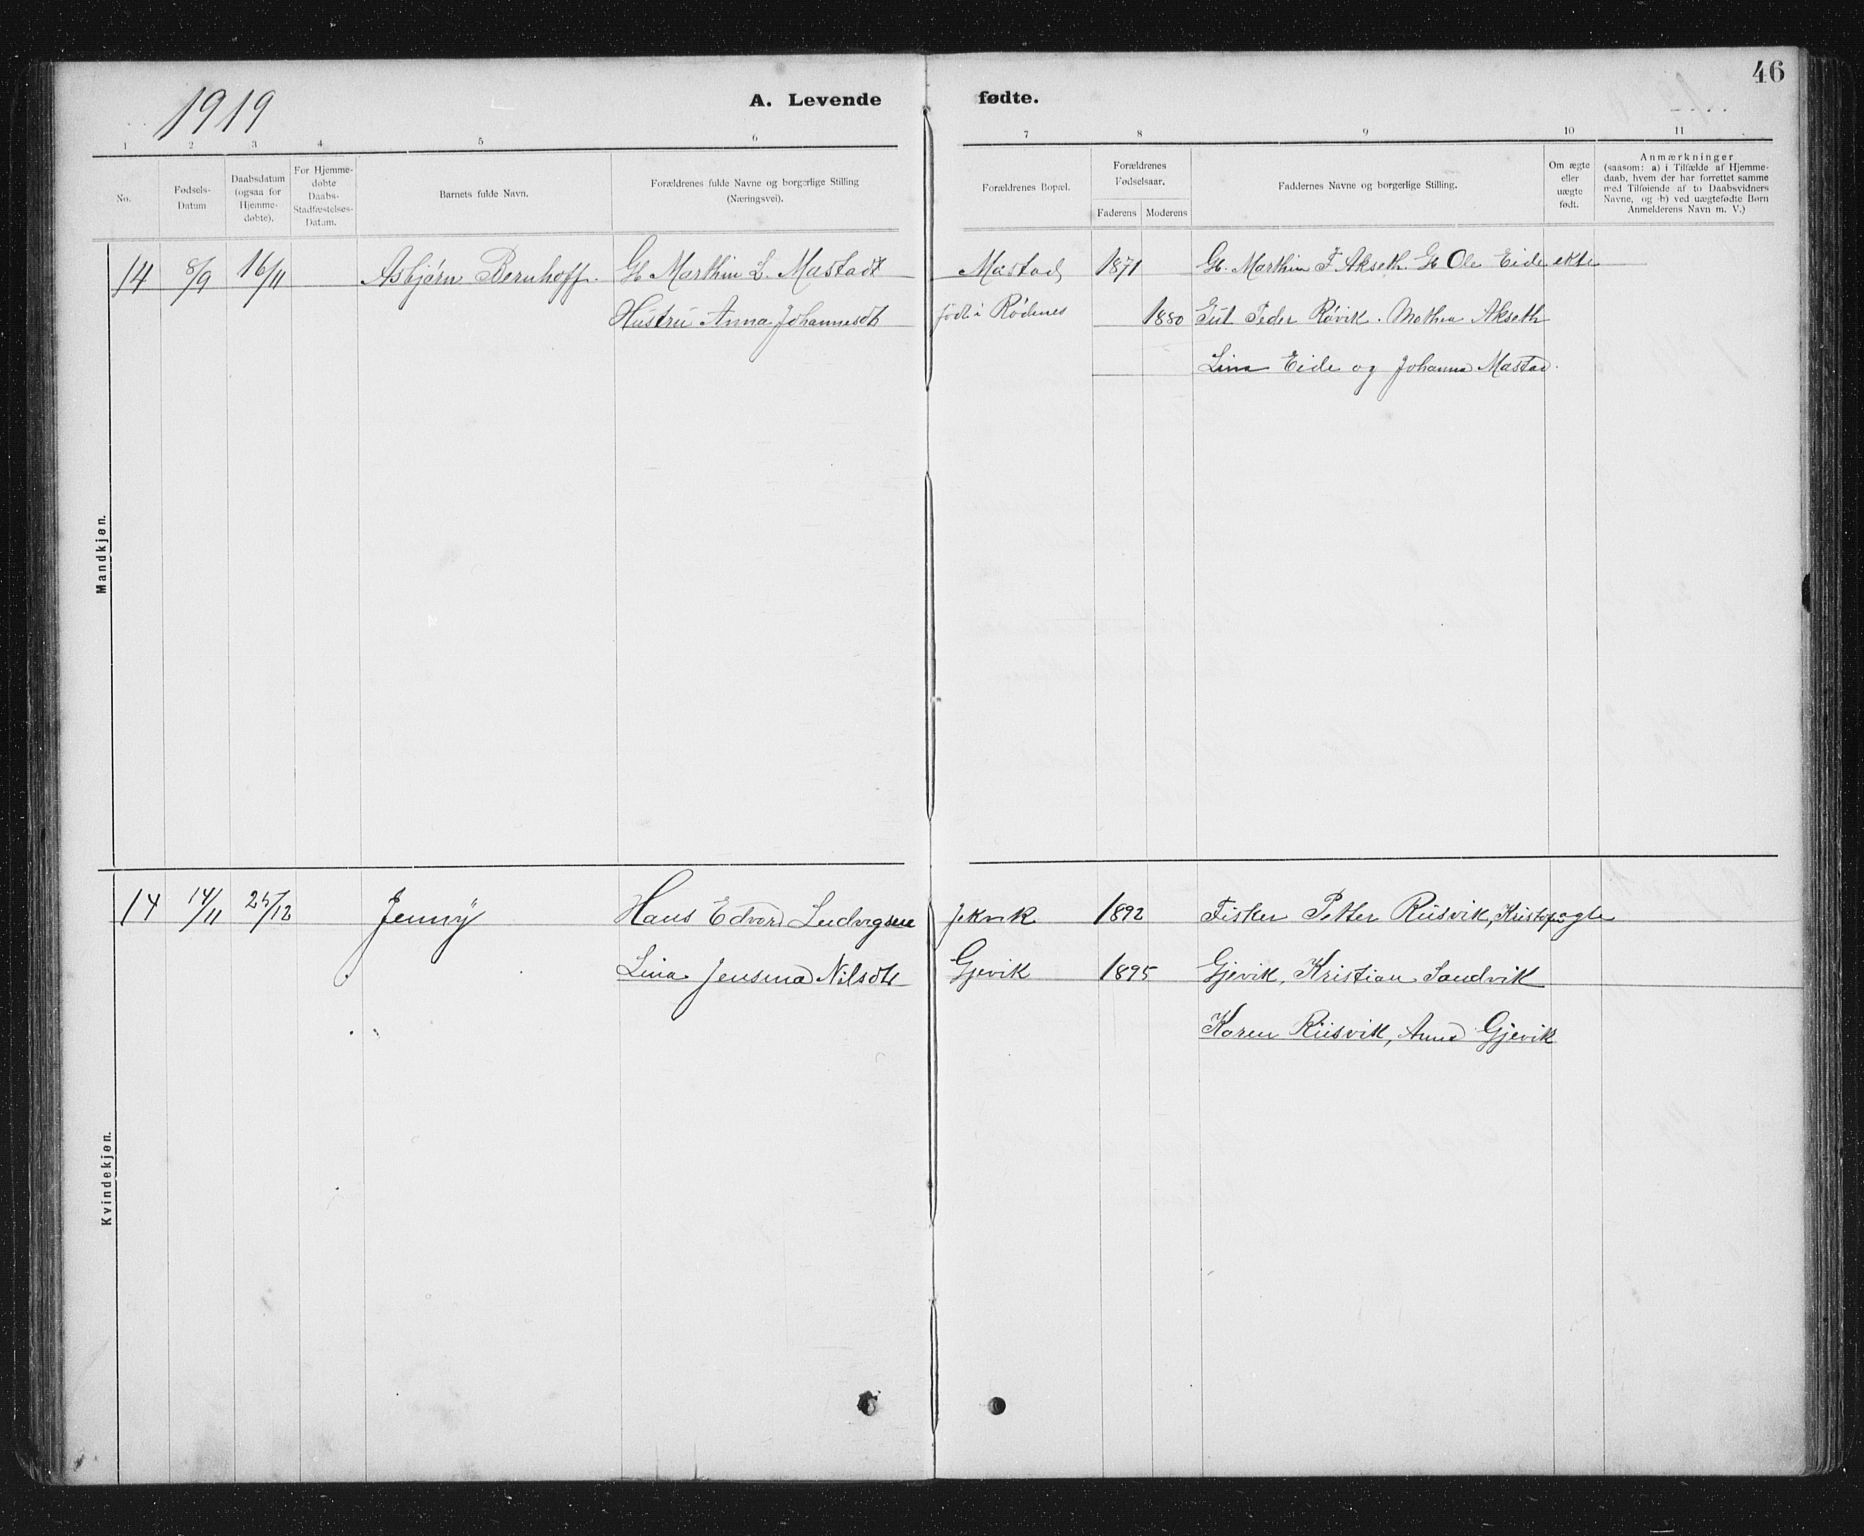 46
1919
A. Levende fødte.
1 2 3 4 5 6 7 8 9 10 11
No.
Fødsels-
Datum
Daabsdatum
(ogsaa for
Hjemme-
døbte).
For Hjemme-
døbte
Daabs-
Stadfæstelses-
Datum.
Barnets fulde Navn.
Forældrenes fulde Navne og borgerlige Stilling
(Næringsvei).
Forældrenes Bopæl.
Forældrenes
Fødselsaar.
Faderens Moderens
Faddernes Navne og borgerlige Stilling.
Om ægte
eller
uægte
født.
Anmærkninger
(saasom: a) i Tilfælde af Hjemme-
daab, hvem der har forrettet samme
med Tilføiende af to Daabsvidners
Navne, og b) ved uægtefødte Børn
Anmelderens Navn m. V.)
Mandkjøn.
14 8/9 16/11 Asbjørn Bernhoff. G. Marthin L. Mæstadt Mæstad 1871 G. Marthin F. Akseth. G Ole Eide ekte
Hustru Anna Johannesdt født i Rødenes 1880 Peder Røvik. Mathea Akseth
Lina Eide og Johanna Mæstad.
Kvindekjøn.
14 14/11 25/12 Jenny Hans Edvard Ludvigsen Jekvik 1892 Fisker Petter Riisvik, Kristof ægte
Lina Jensina Nilsdt Gjevik 1895 Gjevik, Kristian Sandvik
Karen Riisvik, Anna Gjevik